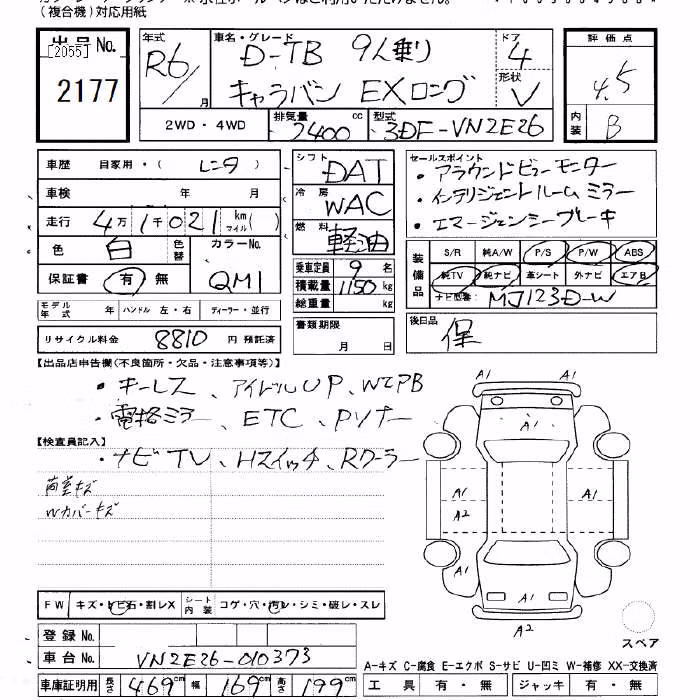 (複合機)対応用紙
出品No. 年式 車名・グレード ドア 評価点
[2055] R6 D-TB 9人乗り 4 4.5
2177 月 キャラバン EXロング 形状 V 内装 B
2WD・4WD 排気量 2400 cc 型式 3DF-VN2E26
車歴 自家用・( レンタ ) シフト DAT セールスポイント
・アラウンドビューモニター
車検 年 月 冷房 WAC ・インテリジェントルームミラー
走行 4万1千021 km マイル( ) 燃料 軽油 ・エマージェンシーブレーキ
色 白 色替 カラーNo. QM1 乗車定員 9 名 装備品 S/R 純A/W P/S P/W ABS
保証書 有・無 積載量 1150 kg 純TV 純ナビ 革シート 外ナビ エアB
総重量 kg ナビ型番: MJ123D-W
モデル年式 年 ハンドル 左・右 ディーラー・並行 書類期限 月 日 後日品 保
リサイクル料金 8810 円 預託済
【出品店申告欄(不良箇所・欠品・注意事項等)】
・キーレス、アイドルUP、WエアB
・電格ミラー、ETC、Pソナー
【検査員記入】 ・ナビTV、Hスイッチ、Rクーラー
荷室キズ
Wカバーキズ
A1 A1
A1
A1 A1
A2
A1 A1
A2
FW キズ・トビ石・割レX シート内装 コゲ・穴・汚レ・シミ・破レ・スレ
登録No. スペア
車台No. VN2E26-010373 A-キズ C-腐食 E-エクボ S-サビ U-凹ミ W-補修 XX-交換済
車庫証明用 長さ 469cm 幅 169cm 高さ 199cm 工具 有・無 ジャッキ 有・無